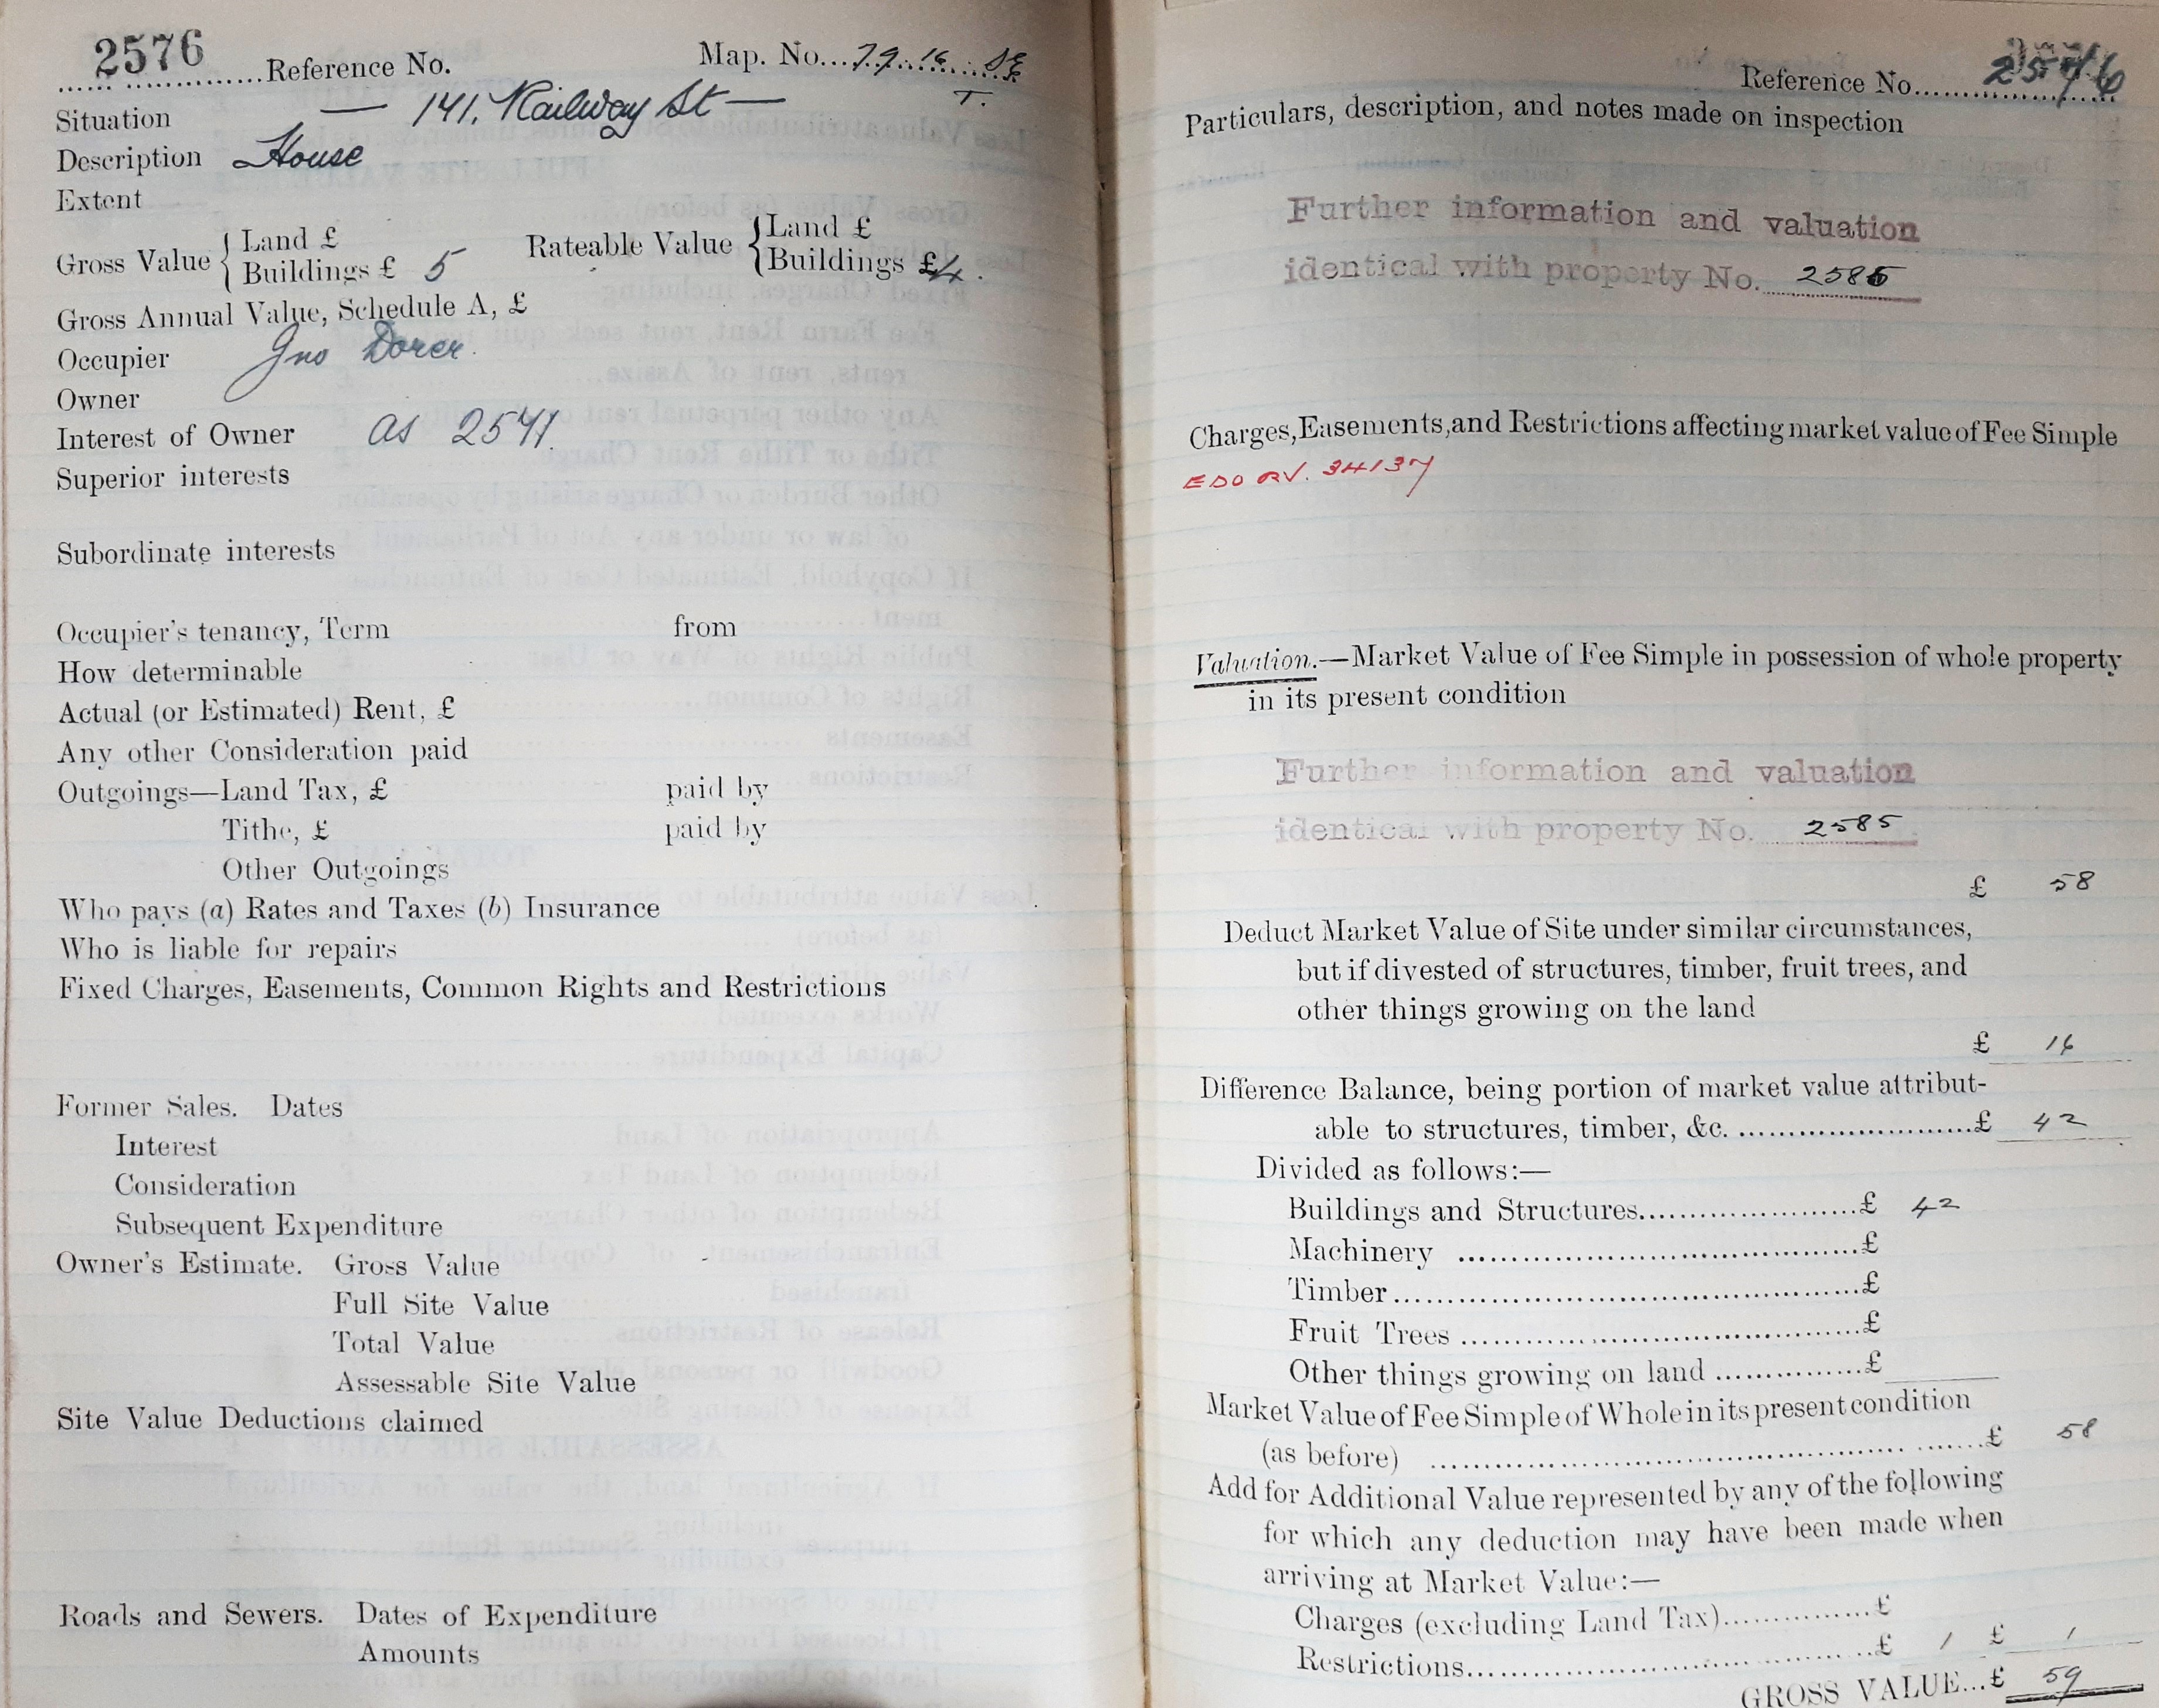 2576 Reference No. Map. No. 79.16. SE
T.
Situation — 141, Railway St —
Description House
Extent
Gross Value { Land £ Rateable Value { Land £
Buildings £ 5 Buildings £ 4.
Gross Annual Value, Schedule A, £
Occupier Jno Dorer.
Owner
Interest of Owner as 2541.
Superior interests
Subordinate interests
Occupier's tenancy, Term from
How determinable
Actual (or Estimated) Rent, £
Any other Consideration paid
Outgoings—Land Tax, £ paid by
Tithe, £ paid by
Other Outgoings
Who pays (a) Rates and Taxes (b) Insurance
Who is liable for repairs
Fixed Charges, Easements, Common Rights and Restrictions
Former Sales. Dates
Interest
Consideration
Subsequent Expenditure
Owner's Estimate. Gross Value
Full Site Value
Total Value
Assessable Site Value
Site Value Deductions claimed
Roads and Sewers. Dates of Expenditure
Amounts
Reference No. 2576
Particulars, description, and notes made on inspection
Further information and valuation
identical with property No. 2585
Charges, Easements, and Restrictions affecting market value of Fee Simple
EDO RV. 34137
Valuation.—Market Value of Fee Simple in possession of whole property
in its present condition
Further information and valuation
identical with property No. 2585
£ 58
Deduct Market Value of Site under similar circumstances,
but if divested of structures, timber, fruit trees, and
other things growing on the land
£ 16
Difference Balance, being portion of market value attribut-
able to structures, timber, &c. £ 42
Divided as follows:—
Buildings and Structures £ 42
Machinery £
Timber £
Fruit Trees £
Other things growing on land £
Market Value of Fee Simple of Whole in its present condition
(as before) £ 58
Add for Additional Value represented by any of the following
for which any deduction may have been made when
arriving at Market Value:—
Charges (excluding Land Tax) £
Restrictions £ 1 £ 1
GROSS VALUE...£ 59